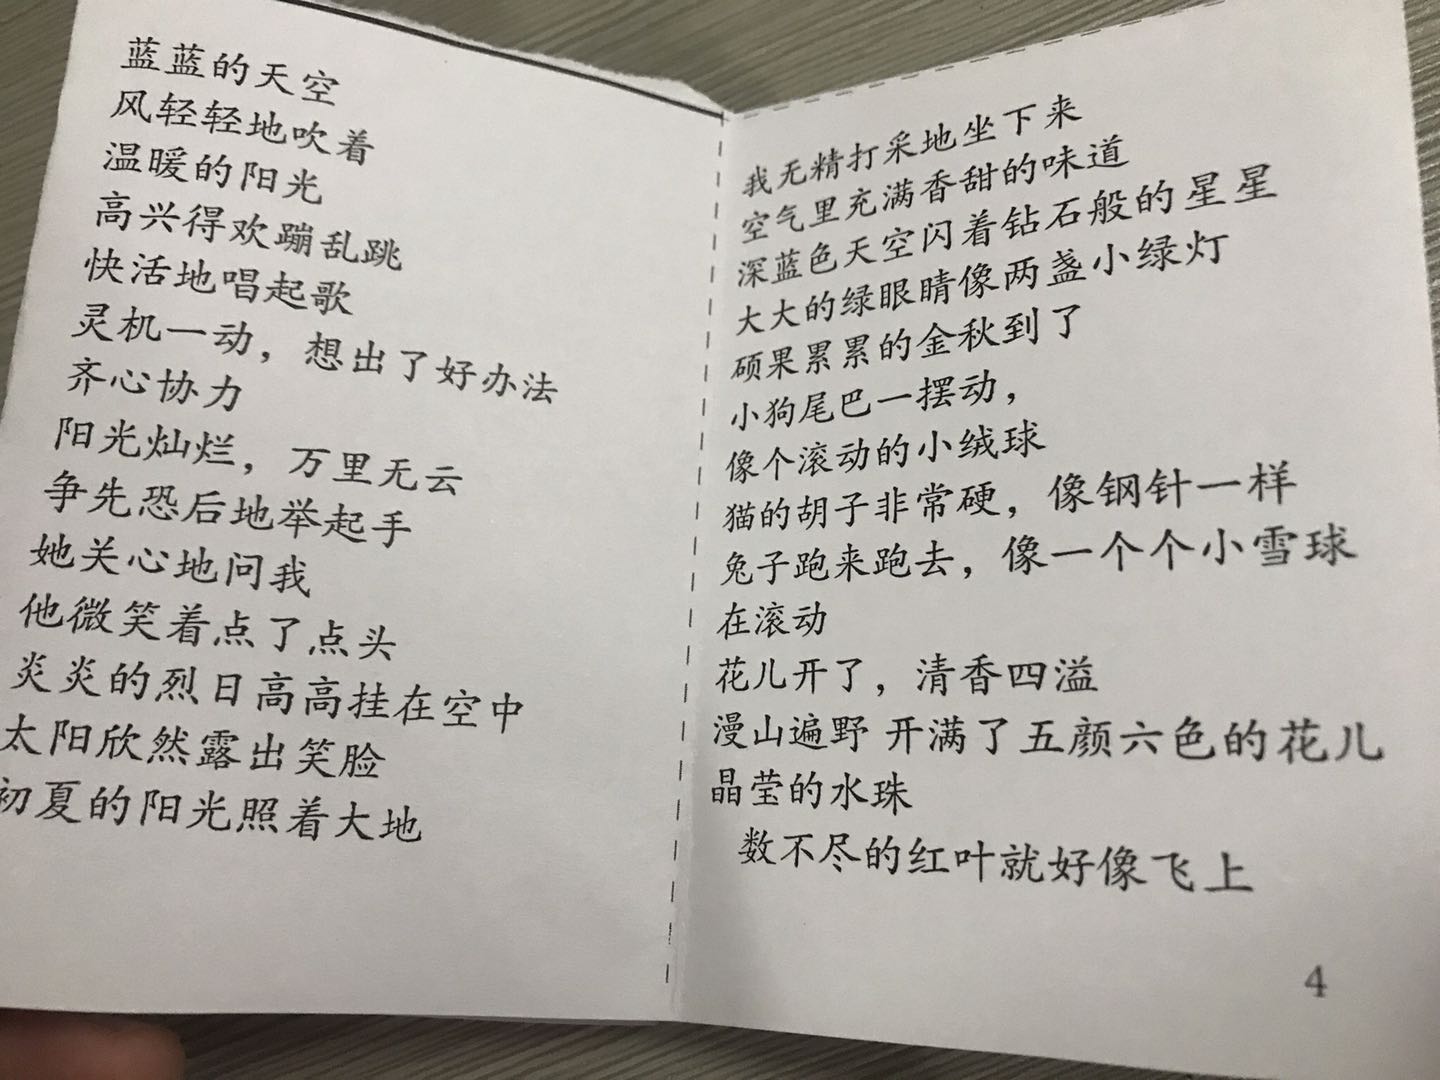 蓝蓝的天空
风轻轻地吹着
温暖的阳光
高兴得欢蹦乱跳
快活地唱起歌
灵机一动，想出了好办法
齐心协力
阳光灿烂，万里无云
争先恐后地举起手
她关心地问我
他微笑着点了点头
炎炎的烈日高高挂在空中
太阳欣然露出笑脸
初夏的阳光照着大地
我无精打采地坐下来
空气里充满香甜的味道
深蓝色天空闪着钻石般的星星
大大的绿眼睛像两盏小绿灯
硕果累累的金秋到了
小狗尾巴一摆动，
像个滚动的小绒球
猫的胡子非常硬，像钢针一样
兔子跑来跑去，像一个个小雪球
在滚动
花儿开了，清香四溢
漫山遍野 开满了五颜六色的花儿
晶莹的水珠
数不尽的红叶就好像飞上
4